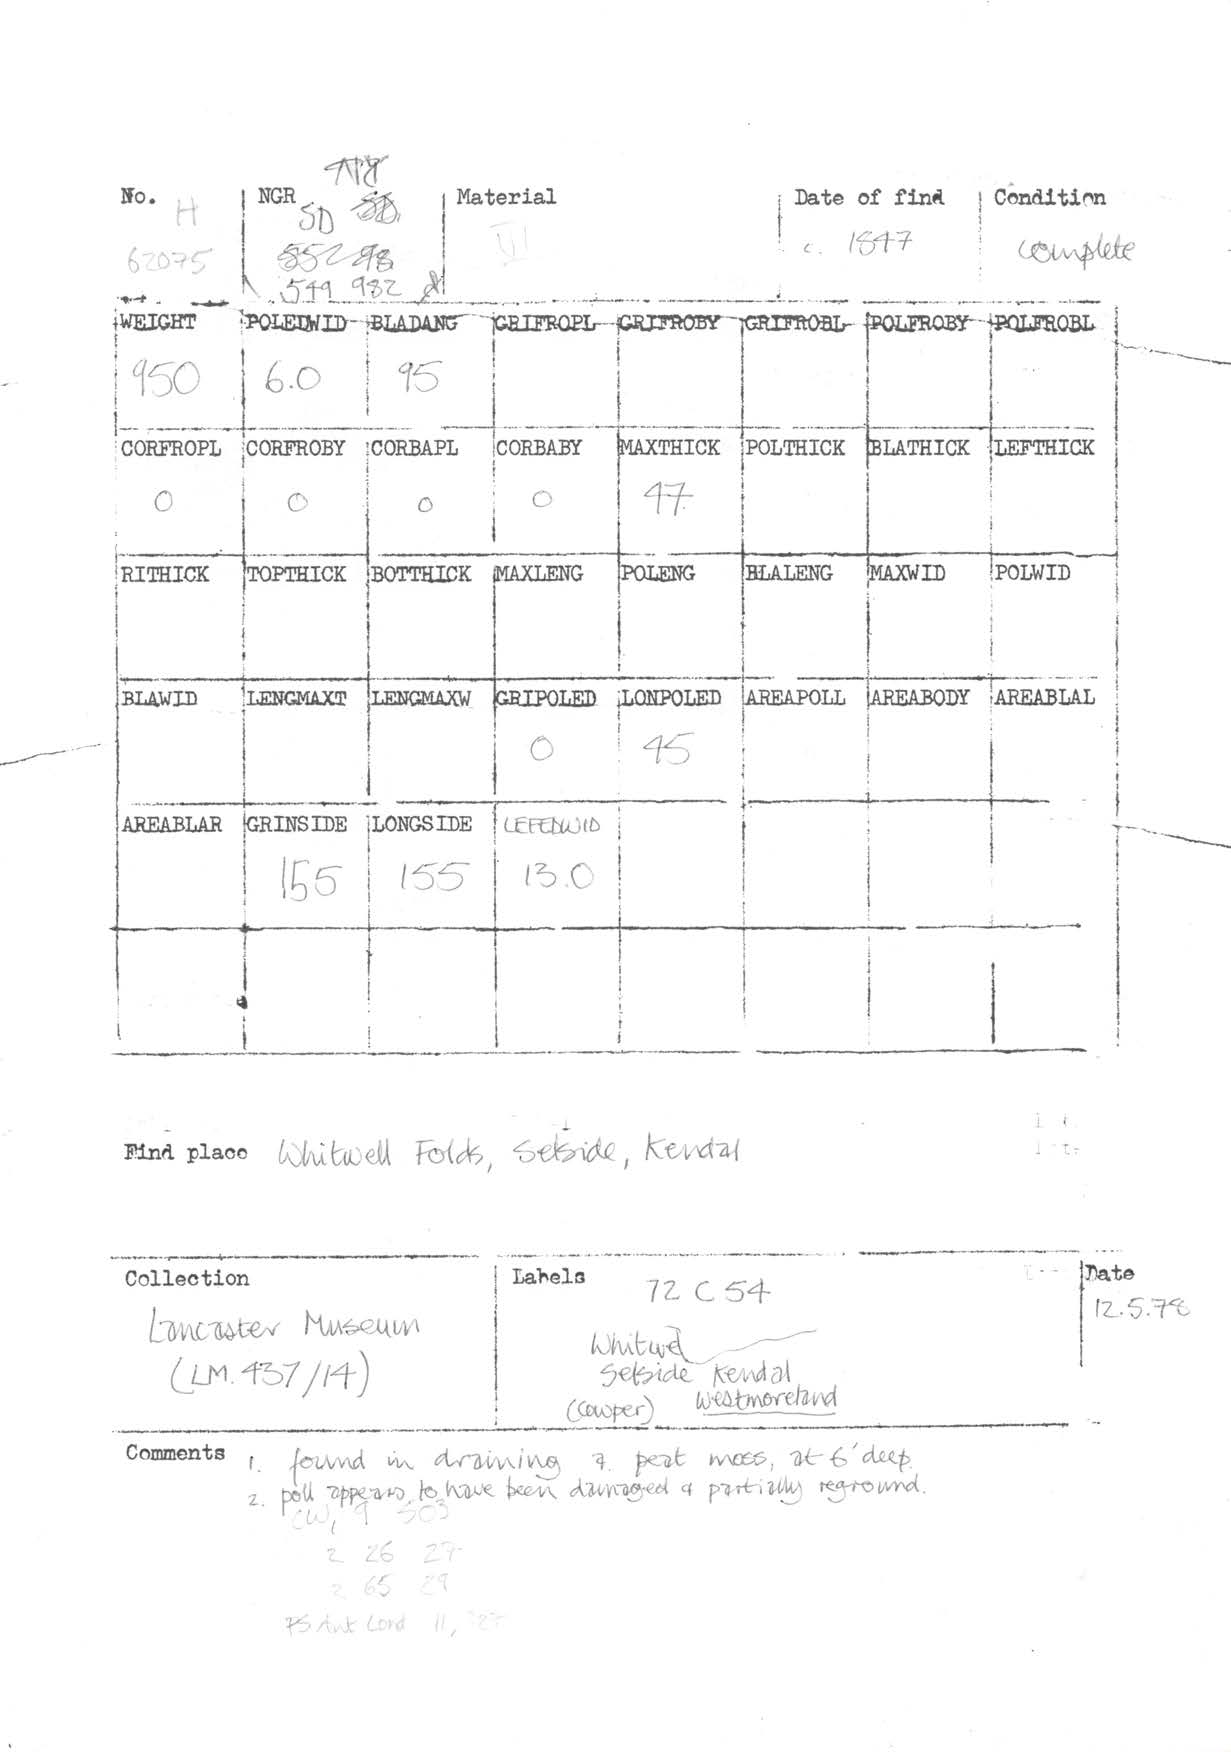 No. NGR Material Date of find Condition
H SD
62075 VI c. 1847 complete
549 982
WEIGHT POLEDWID BLADANG GRIFROPL GRIFROBY GRIFROBL POLFROBY POLFROBL
950 6.0 95
CORFROPL CORFROBY CORBAPL CORBABY MAXTHICK POLTHICK BLATHICK LEFTHICK
0 0 0 0 47
RITHICK TOPTHICK BOTTHICK MAXLENG POLENG BLALENG MAXWID POLWID
BLAWID LENGMAXT LENGMAXW GRIPOLED LONPOLED AREAPOLL AREABODY AREABLAL
0 45
AREABLAR GRINSIDE LONGSIDE LEFEDWID
155 155 13.0
Find place Whitwell Folds, Selside, Kendal
Collection Labels Date
72 C 54
12.5.78
Lancaster Museum
Whitwel
(LM. 437/14)
Selside Kendal
(Cowper) Westmoreland
Comments 1. found in draining a peat moss, at 6' deep.
2. poll appears to have been damaged & partially reground.
CW, 9 503
2 26 27
2 65 29
PS Ant Lond 11,